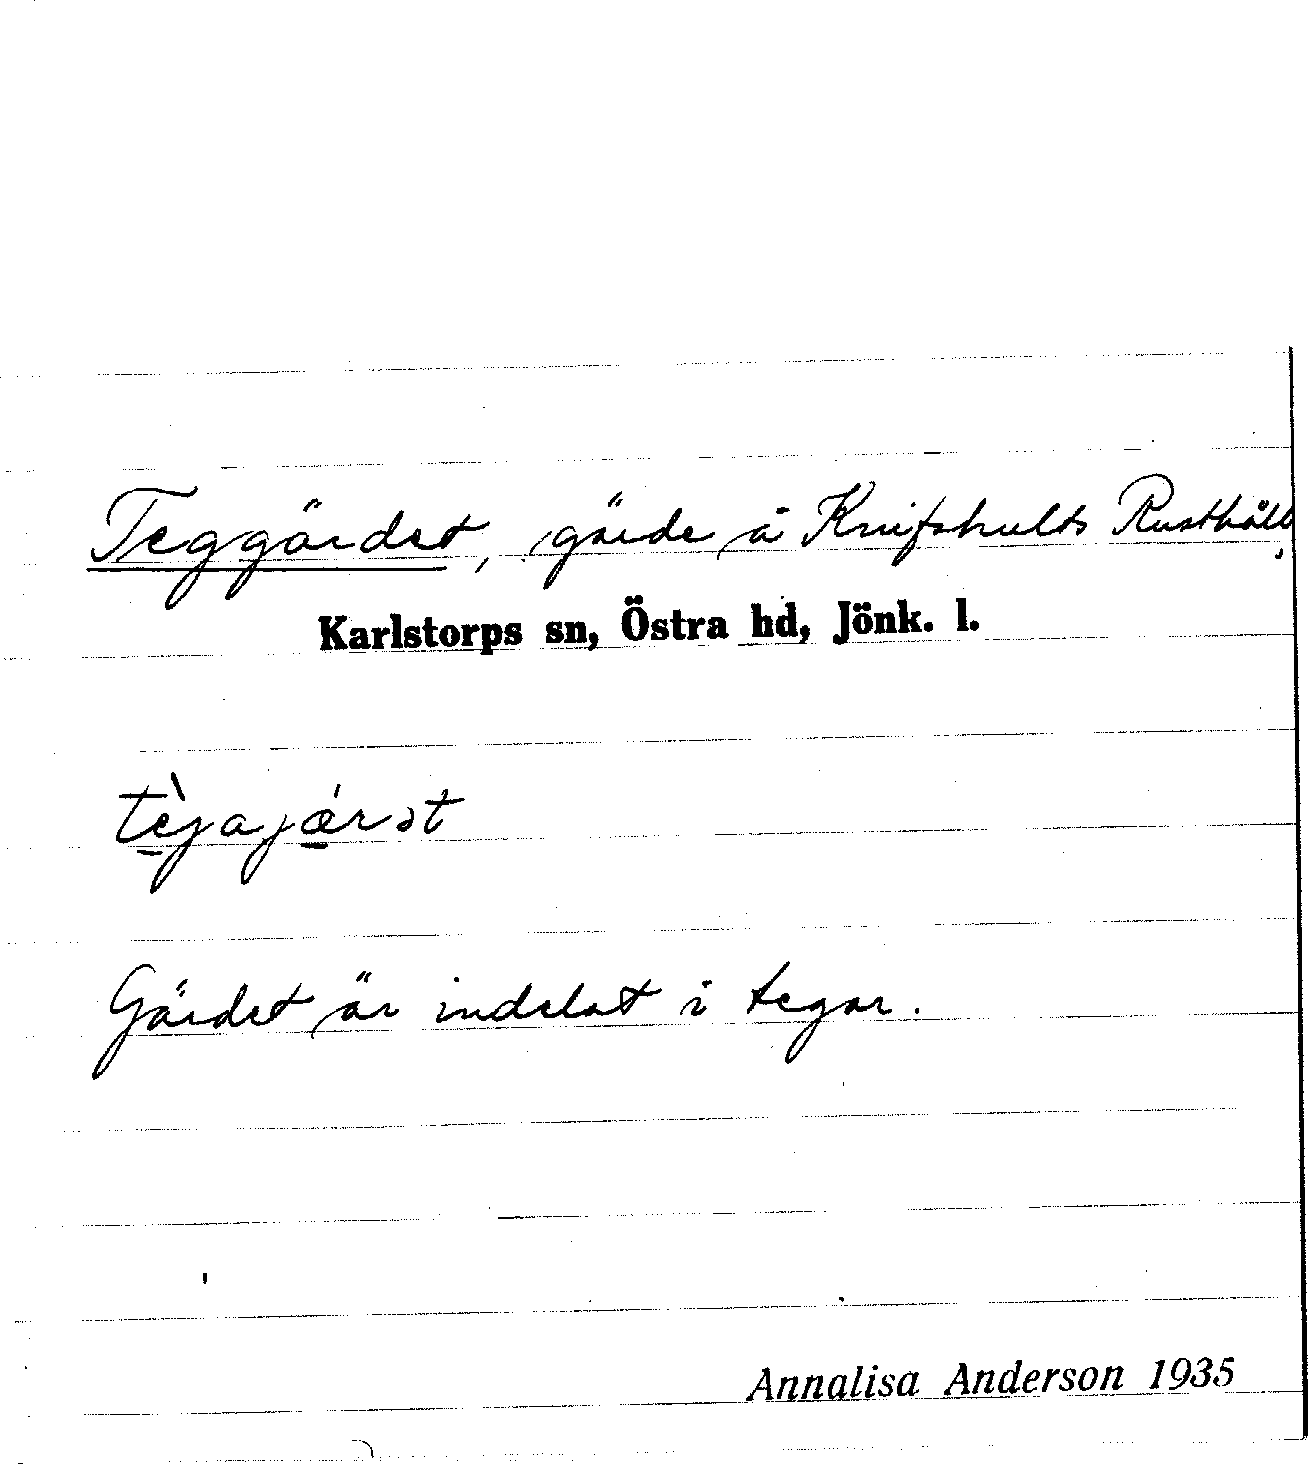 Teggärdet, gärde å Knifshults Rusthåll,
Karlstorps sn, Östra hd, Jönk. l.
tè̠jajǽ̠rət
Gärdet är indelat i tegar.
Annalisa Anderson 1935